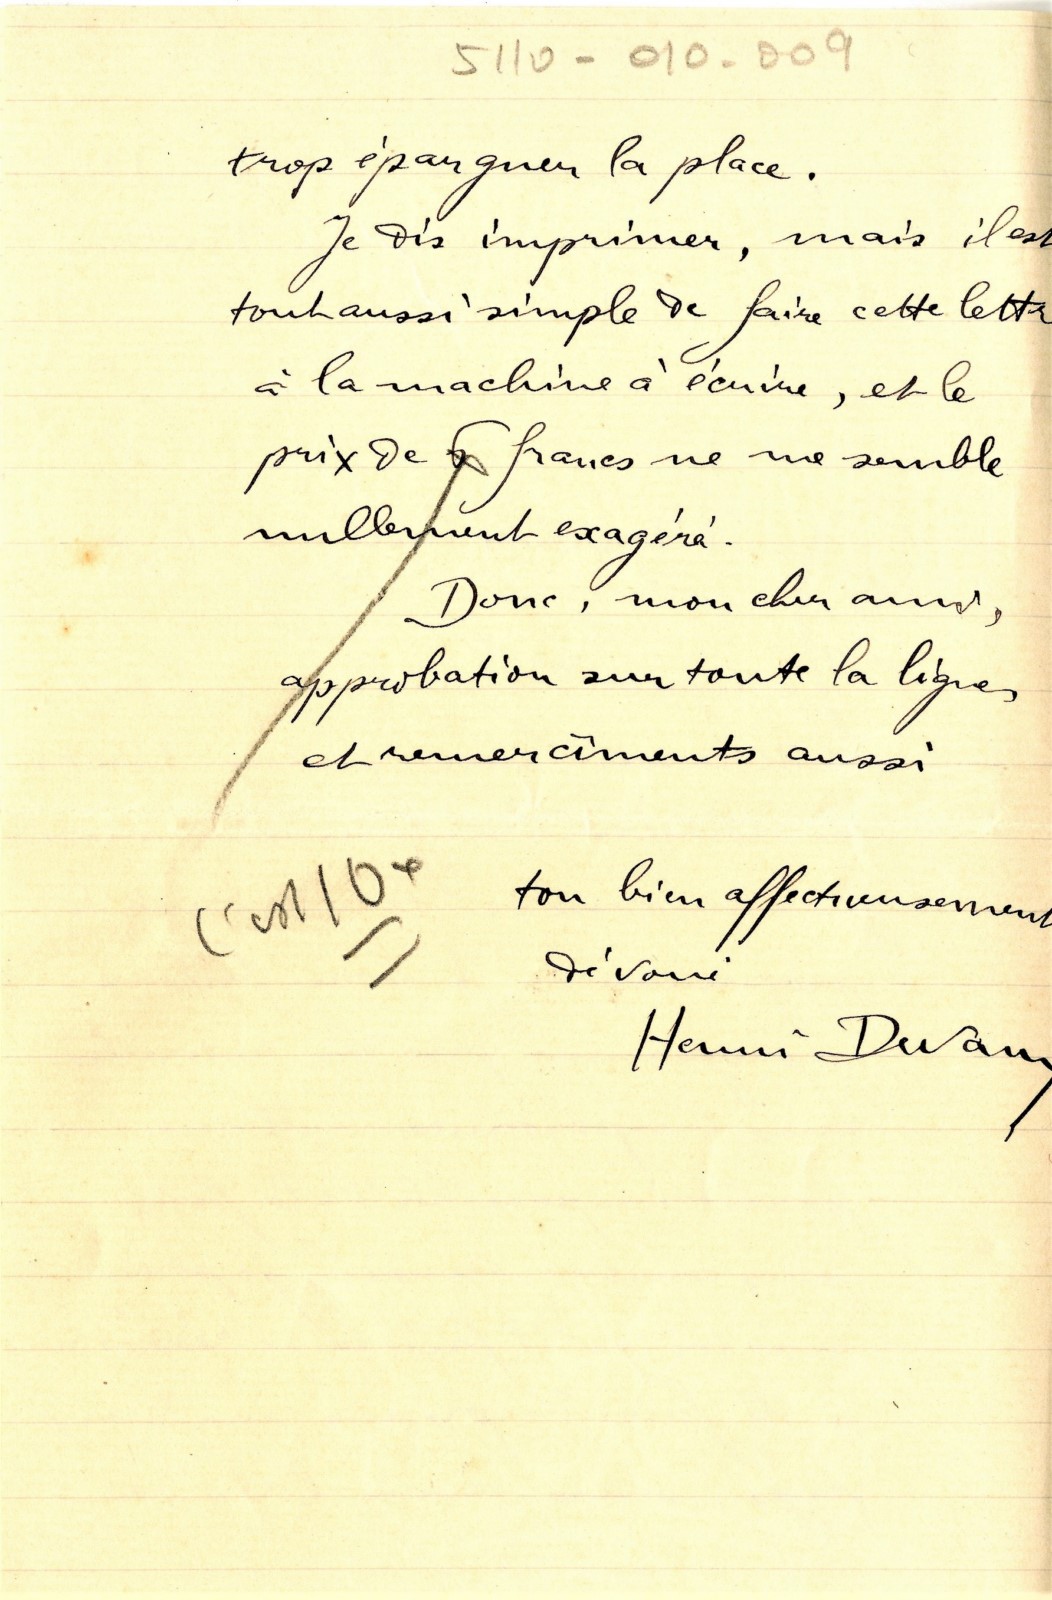 5110 - 010.009
trop épargner la place.
Je dis imprimer, mais il est
tout aussi simple de faire cette lettr
à la machine à écrire, et le
prix de francs ne me semble
nullement exagéré.
Donc, mon cher ami,
approbation sur toute la ligne,
et remerciments aussi
c'est 10
ton bien affectueusement
dévoué
Henri